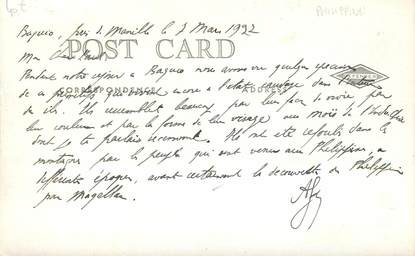 PHILIPPINE
Baguio, près de Manille le 3 Mars 1922
Mon cher
POST CARD
Pendant notre séjour à Baguio nous avons vu quelques
de ces primitifs qui vivent encore à l'état sauvage dans
CORRESPONDENCE ADDRESS
de ils. Ils ressemblent beaucoup par leur façon de vivre, par
leur couleur et par la forme de leur visage aux Moïs de l'Indochine
dont je te parlais récemment. Ils ont été refoulés dans les
montagnes par les peuples qui sont venus aux Philippines, à
différentes époques, avant certainement la découverte des Philippines
par Magellan.